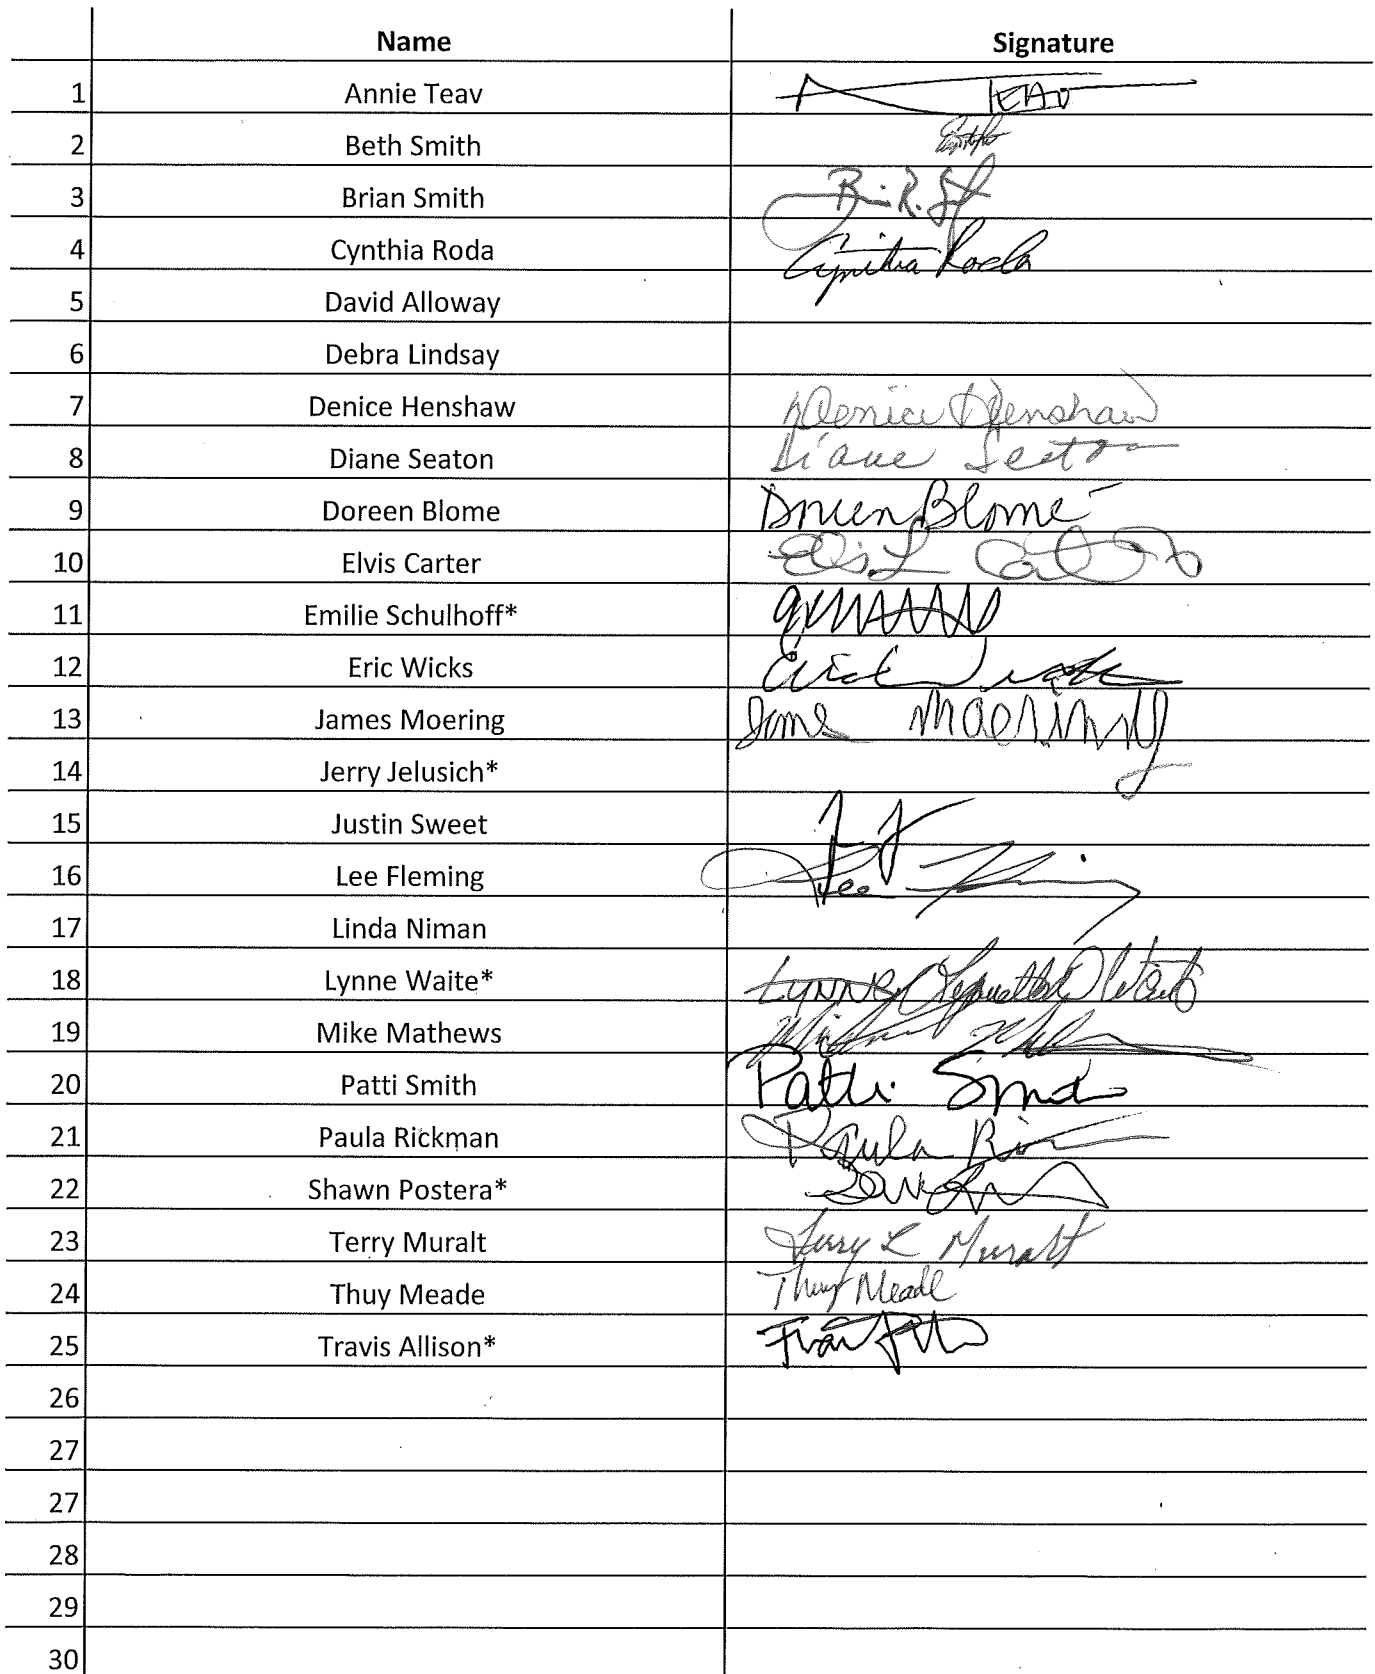 Name Signature
1 Annie Teav TEAV
2 Beth Smith
3 Brian Smith Brian R. S
4 Cynthia Roda Cynthia Roda
5 David Alloway
6 Debra Lindsay
7 Denice Henshaw Denice Henshaw
8 Diane Seaton Diane Seaton
9 Doreen Blome Doreen Blome
10 Elvis Carter Elvis L Carter
11 Emilie Schulhoff*
12 Eric Wicks Eric Wicks
13 James Moering James Moering
14 Jerry Jelusich*
15 Justin Sweet
16 Lee Fleming Lee Fleming
17 Linda Niman
18 Lynne Waite* Lynne Waite
19 Mike Mathews
20 Patti Smith Patti Smith
21 Paula Rickman Paula
22 Shawn Postera*
23 Terry Muralt Terry L Muralt
24 Thuy Meade Thuy Meade
25 Travis Allison* Travis
26
27
27
28
29
30